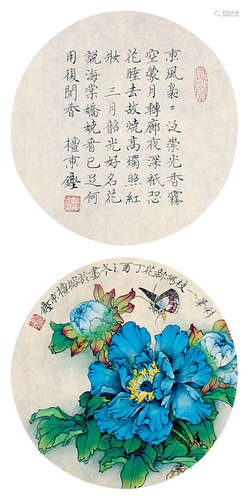 東風裊〻泛崇光香霧
空蒙月轉廊夜深祇恐
花睡去故燒高燭照紅
妝 三月韶光好名花
說海棠嬌嬈看已足何
用復聞香 檀東
一枝 花丁酉 檀東